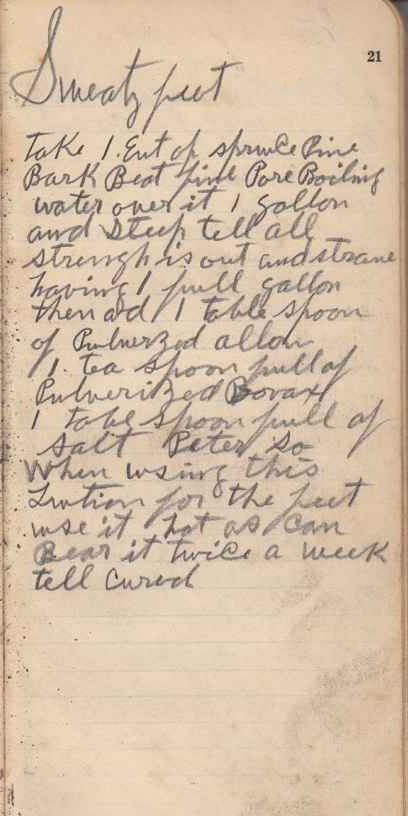 21
Sweaty feet
take 1. Eut of spruce Pine
Bark Beat fine Pore Boiling
water over it 1 gallon
and Steep tell all
strength is out and strane
having 1 full gallon
then ad 1 table spoon
of Pulverzed allom
1. tea spoon full of
Pulverized Borax
1 table spoon full of
Salt Peter so
When using this
Lution for the feet
use it hot as can
Bear it twice a week
tell cured